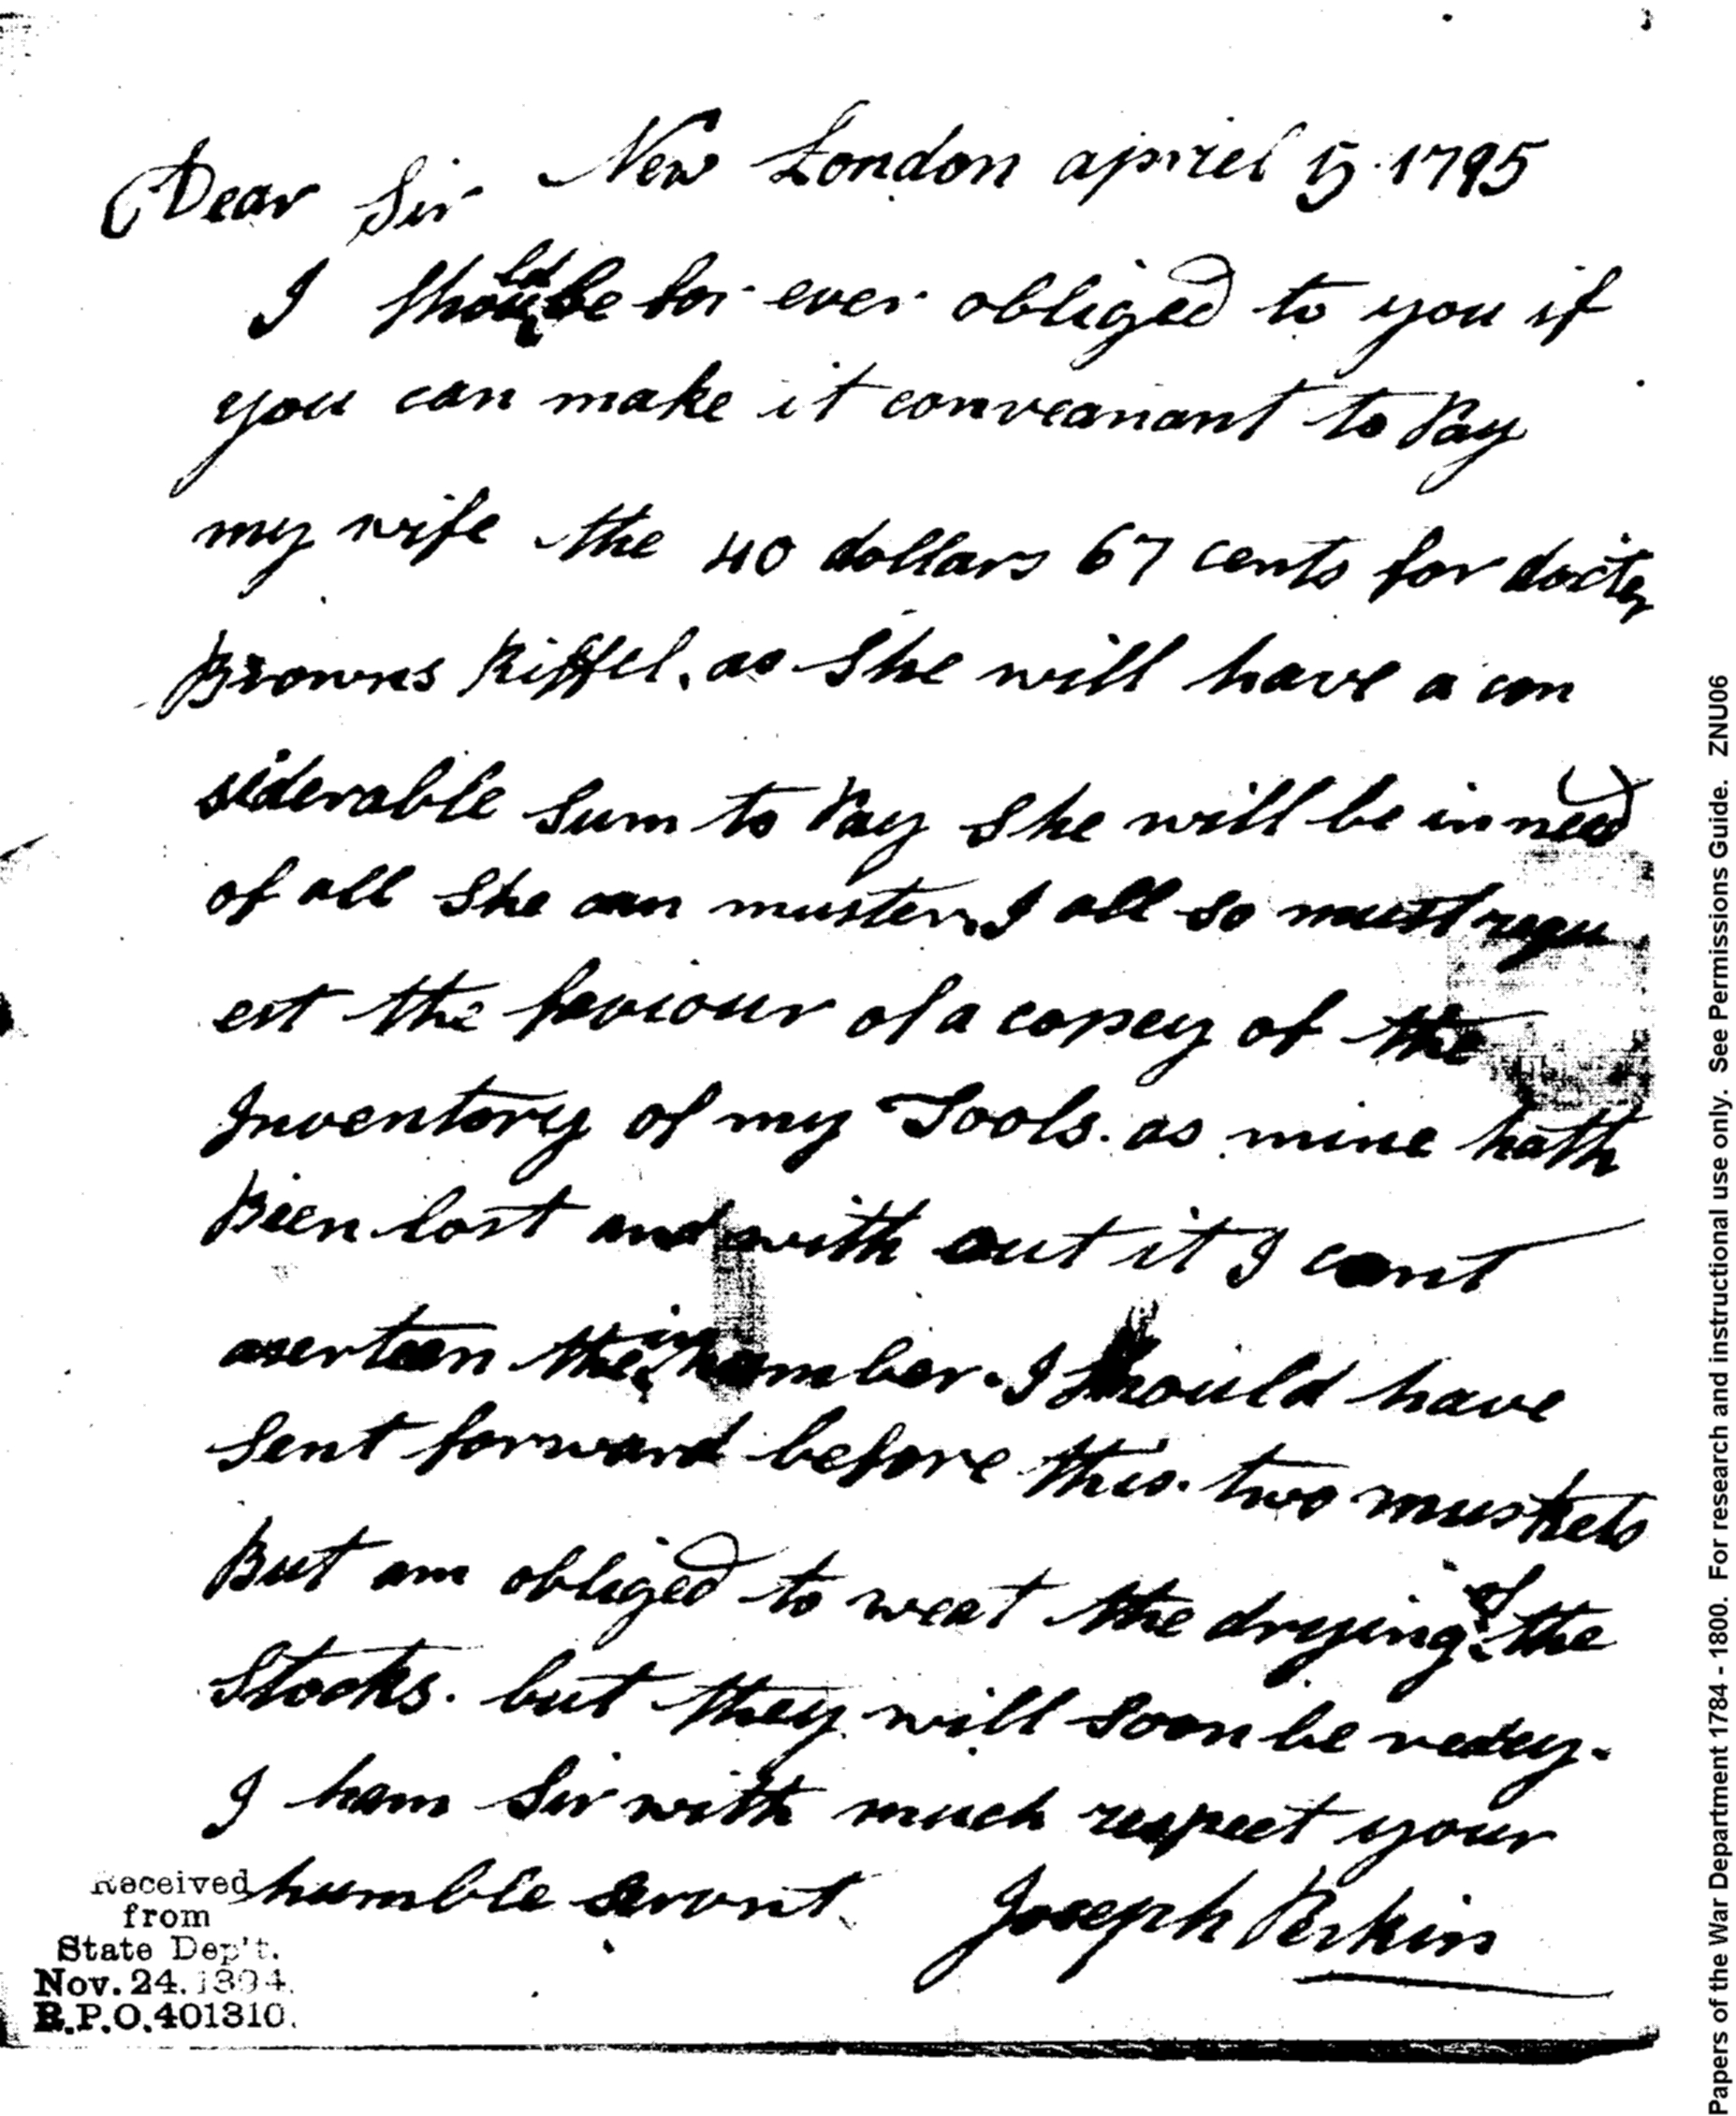 New London apriel 5 1795
Dear Sir
I should be for ever obliged to you if
you can make it conveanant to Pay
my wife the 40 dollars 67 cents for docter
Browns Riffel. as She will have a con
siderable Sum to Pay She will be in need
of all She can muster. I all so must requ
est the faviour of a copey of the
Inventory of my Tools. as mine hath
Bien lost and with out it I cant
aserteen the in number. I Should have
Sent forward before this. two muskets
But am obliged to weat the drying of the
Stocks. but they will Soon be redey.
I ham Sir with much respect your
humble servnt
Joseph Perkin
Received
from
State Dep't.
Nov. 24. 1894.
R.P.O. 401310.
Papers of the War Department 1784 - 1800. For research and instructional use only. See Permissions Guide. ZNU06